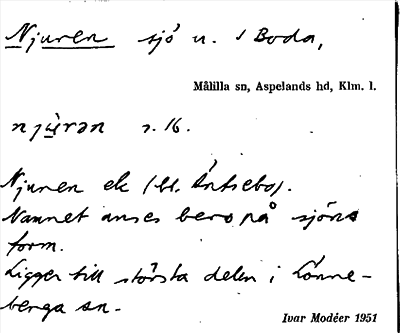 Njuren sjö u. / Boda,
Målilla sn, Aspelands hd, Klm. l.
njùrən s. 16.
Njuren ek (bl. Äntsebo).
Namnet anses bero på sjöns
form.
Ligger till största delen i Lönne-
berga sn.
Ivar Modéer 1951